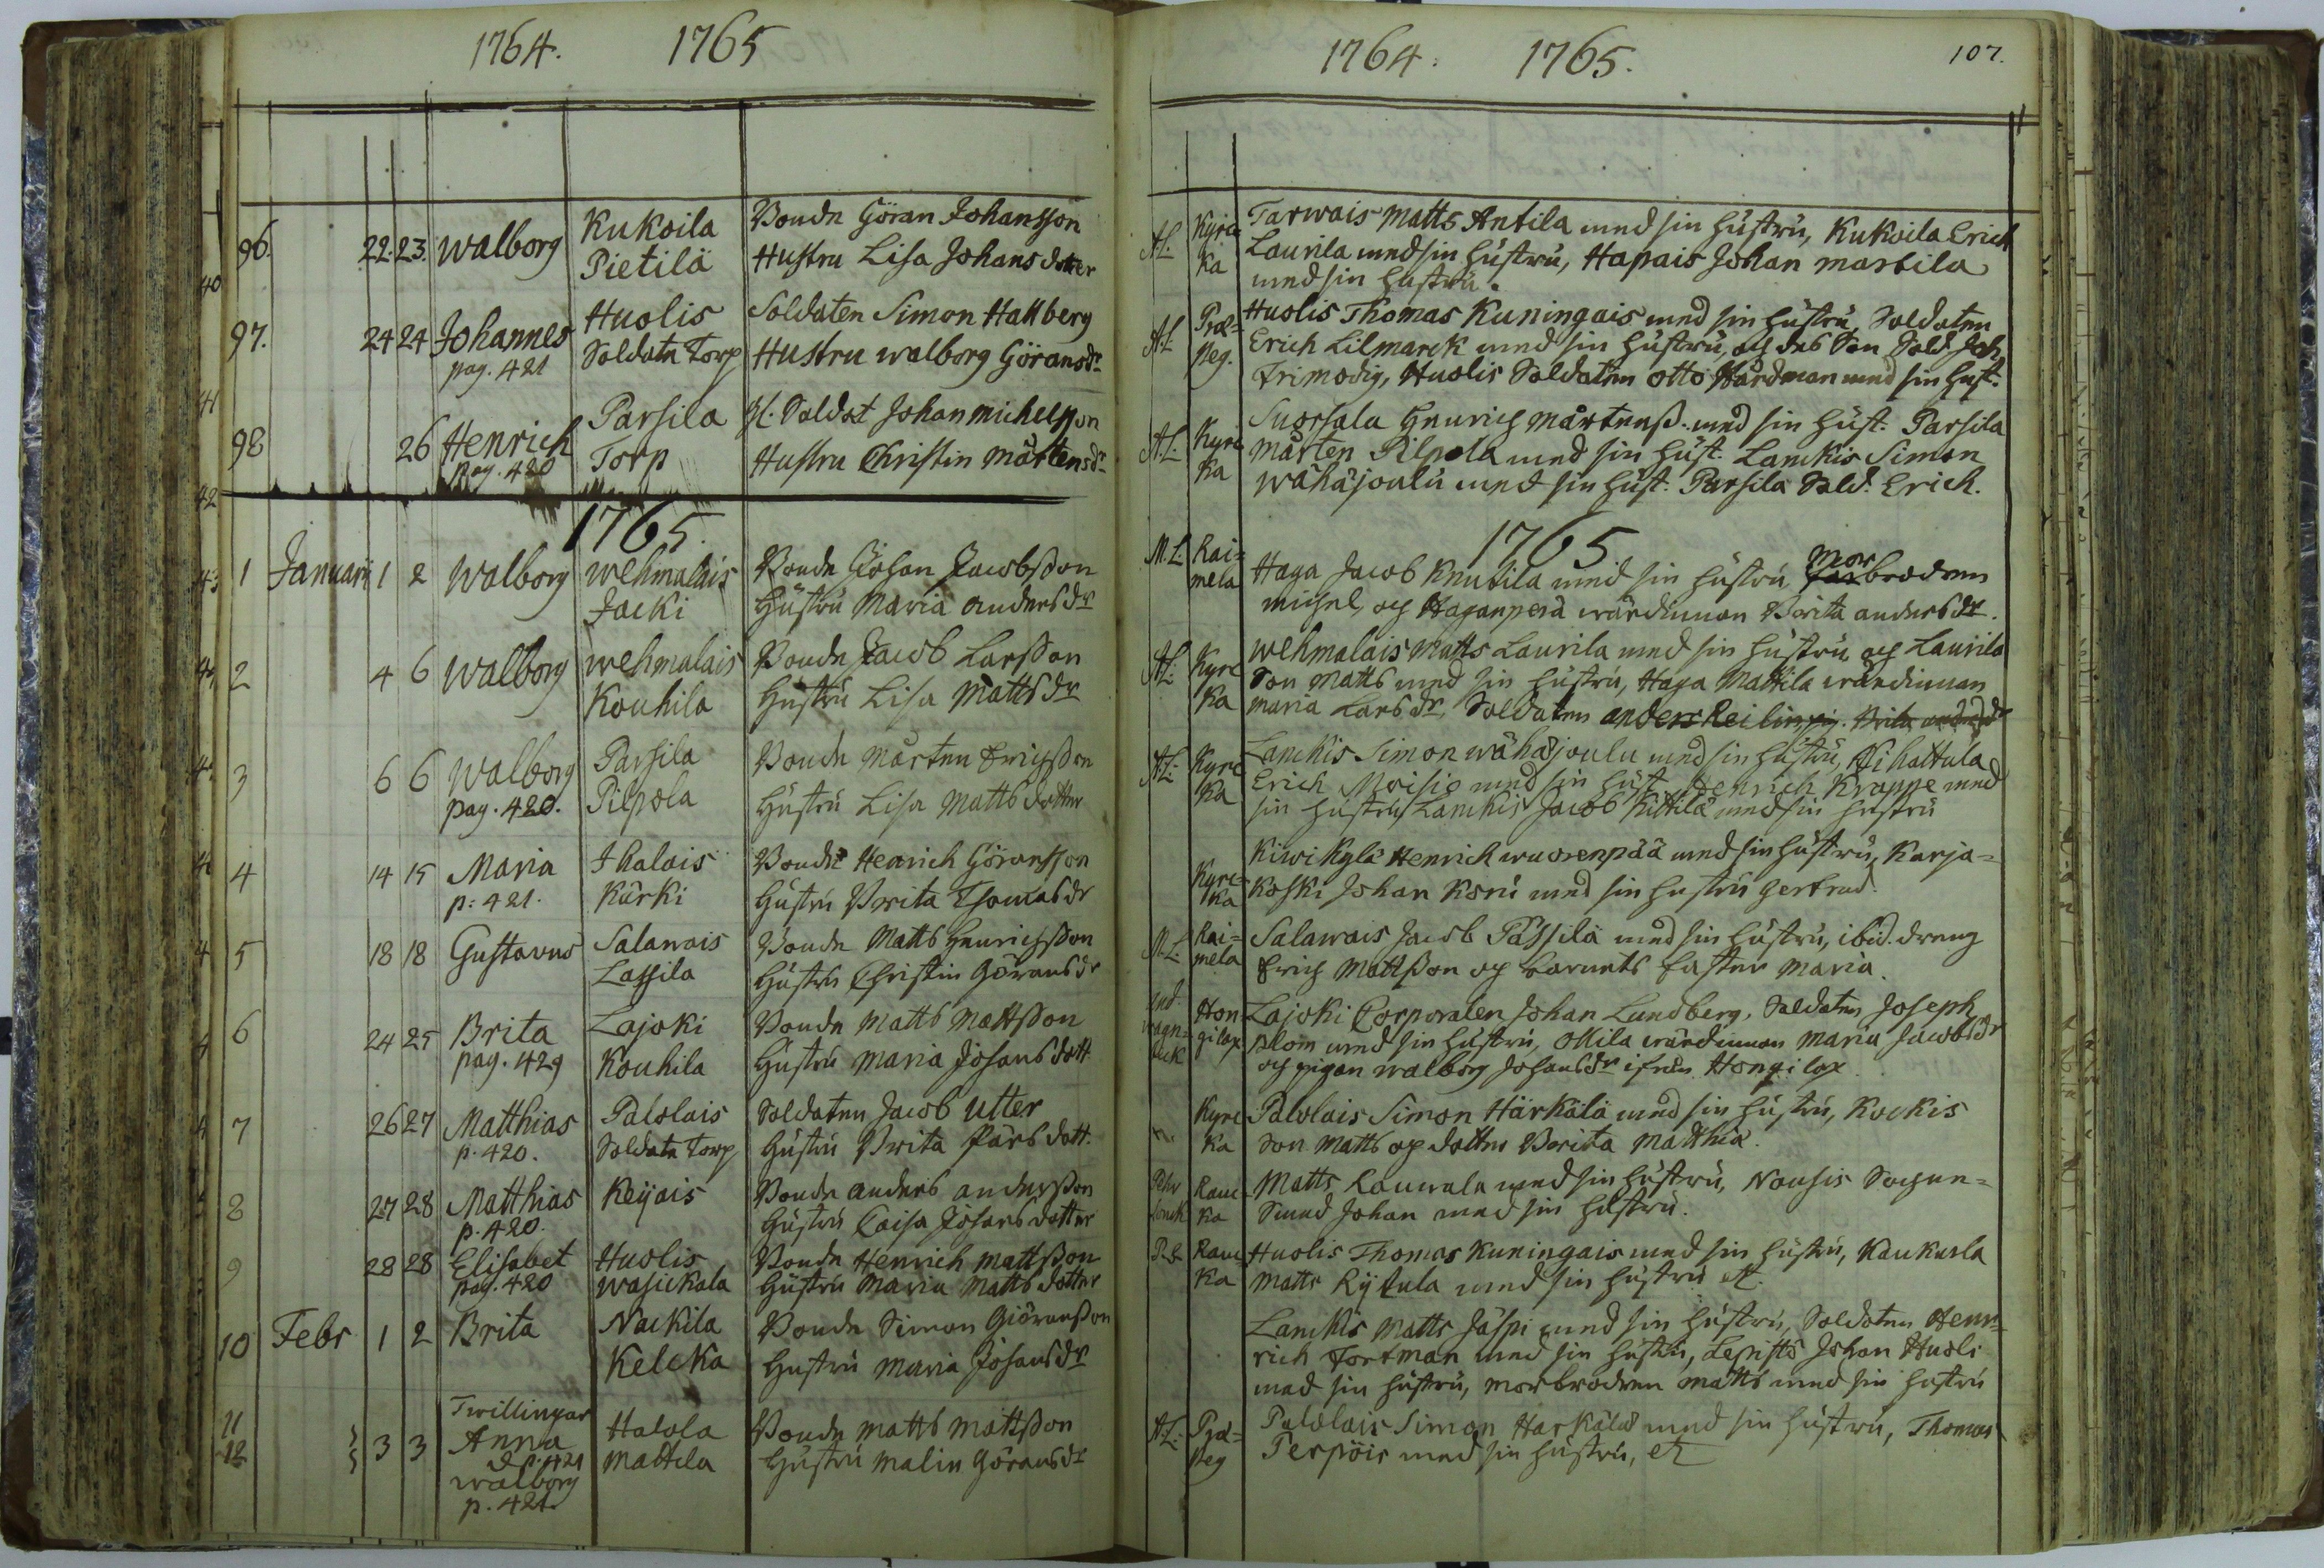 1764. 1765
96. 22. 23. Walborg Kukoila Bonde Göran Johansson
Pietilä Hustru Lisa Johans dotter
97. 24 24 Johannes Huolis Soldaten Simon Hallberg
pag. 421 Soldate Torp Hustru Walborg Göransdr
98 26 Henrich Parsila Soldat Johan Michelsson
pag. 420 Torp Hustru Christin Mårtensdr
1765.
1 Januari 1 2 Walborg Wehmalais Bonde Johan Jacobsson
Jacki Hustru Maria Andersdr
2 4 6 Walborg Wehmalais Bonde Jacob Larsson
Kouhila Hustru Lisa Mattsdr
3 6 6 Walborg Parsila Bonde Mårten Ericsson
pag. 420. Pilpola Hustru Lisa Matts dotter
4 14 15 Maria Ihalais Bonde Henrich Göransson
p: 421. Kärki Hustru Brita Thomasdr
5 18 18 Gustavus Salawais Bonde Matts Henricsson
Lassila Hustru Christin Göransdr
6 24 25 Brita Lajoki Bonde Matts Mattsson
pag. 429 Kouhila Hustru Maria Johans dott
7 26 27 Matthias Palolais Soldaten Jacob Utter
p. 420. Soldate Torp Hustru Brita Pärs dott.
8 27 28 Matthias Keijais Bonde Anders Andersson
p. 420. Hustru Caisa Johans dotter
9 28 28 Elisabet Huolis Bonde Henrich Mattsson
pag. 420 Wajickala Hustru Maria Matts dotter
10 Febr 1 2 Brita Nackila Bonde Simon Giöransson
Kelcka Hustru Maria Johansdr
Twillingar
11 Anna Halola Bonde Matts Mattsson
12 3 3 p. 421 Mattila Hustru Malin Göransdr
Walborg
p. 421.
1764. 1765. 107.
A.L. Kyrc Tarwais Matts Antila med sin hustru, Kukoila Erich
ka Laurila med sin hustru, Hapais Johan Martila
med sin hustru.
A.L. Præ- Huolis Thomas Kuningais med sin hustru, Soldaten
peg. Erich Lilmarck med sin hustru, och des Son Sold. Joh
Frimodig, Huolis Soldaten Otto Hårdman med sin hust.
A.L. Kyrc Suorsala Henrich Mårtenss. med sin hust. Parsila
ka Mårten Pilpola med sin hust. Lanckis Simon
Wähäjoulu med sin hust. Parsila Sold. Erich.
1765
M.L. Rai- Haga Jacob Knutila med sin hustru, Morbrodren
mela Michel, och Haganperä wärdinnan Brita Andersdr.
A.L. Kyrc Wehmalais Matts Laurila med sin hustru och Laurila
ka Son Matts med sin hustru, Haga Mattila wärdinnan
Maria Larsdr, Soldaten Anders
A.L. Kyrc Lanckis Simon Wähäjoulu med sin hustru, Pihattula
ka Erich Moisio med sin hust. Henrich Krappe med
sin hustru Lanckis Jacob Kittilä med sin hustru
Kyrc Kiwikylä Henrich Wuorenpää med sin hustru, Karja-
ka koski Johan Koru med sin hustru Gertrud.
M.L. Rai- Salawais Jacob Pässilä med sin hustru, ibid. dreng
mela Erich Mattsson och barnets faster Maria.
Hon Lajoki Corporalen Johan Lundberg, Soldaten Joseph
gilax Blom med sin hustru, Ollila wärdinnan Maria Jacobsdr
och pigan Walborg Johansdr ifrån Hongilax.
Kyrc Palolais Simon Härkälä med sin hustru, Kockis
ka Son Matts och dotter Brita Matthiæ.
Pehr Raum Matts Rauwala med sin hustru, Nousis Sochne-
ka Smed Johan med sin hustru.
P.L. Raum Huolis Thomas Kuningais med sin hustru, Kaukurla
ka Matts Rytula med sin hustru etc.
Lanckis Matts Jäspi med sin hustru, Soldaten Hen-
rich Fortman med sin hustru, Lepistö Johan Huoli
med sin hustru, Morbrodren Matts med sin hustru
A.L. Præ- Palolais Simon Harkälä med sin hustru, Thomas
peg Perpöis med sin hustru, etc